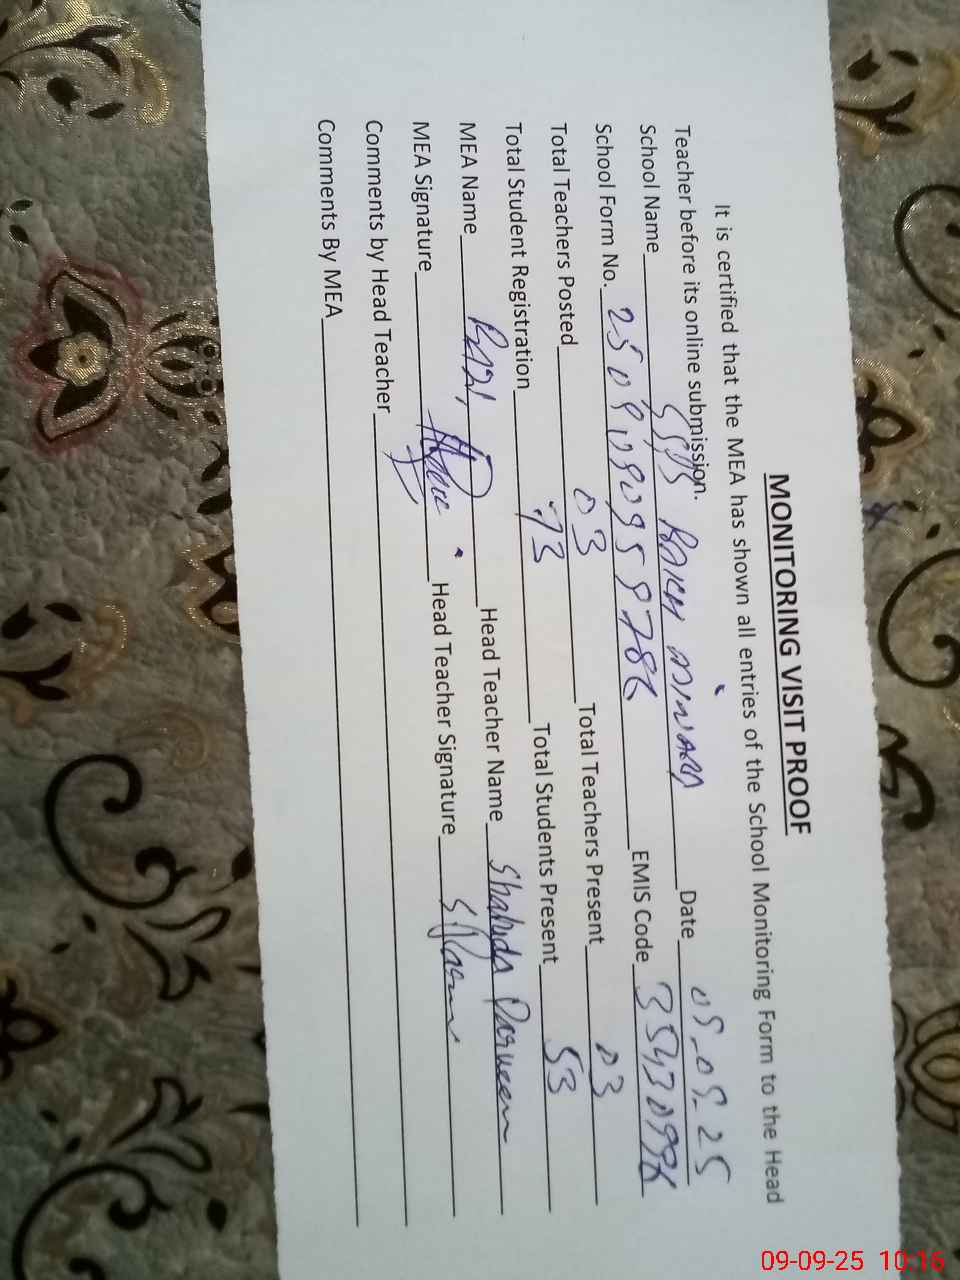 MONITORING VISIT PROOF
It is certified that the MEA has shown all entries of the School Monitoring Form to the Head
Teacher before its online submission.
School Name Date
School Form No. EMIS Code
Total Teachers Posted 03 Total Teachers Present 03
Total Student Registration 73 Total Students Present 53
MEA Name Head Teacher Name Shahida Parveen
MEA Signature Head Teacher Signature
Comments by Head Teacher
Comments By MEA
09-09-25 10:16